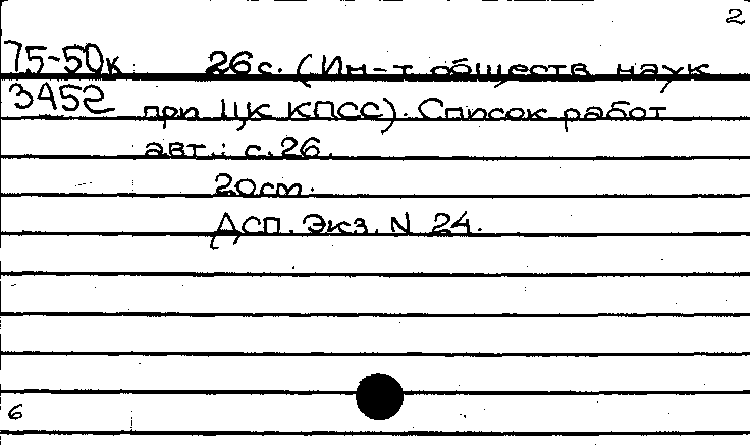 2
75-50к 26с. (Ин-т обществ. наук
3452 при ЦК КПСС). Список работ
авт.: с.26.
20см.
ДСП. Экз. N 24.
6